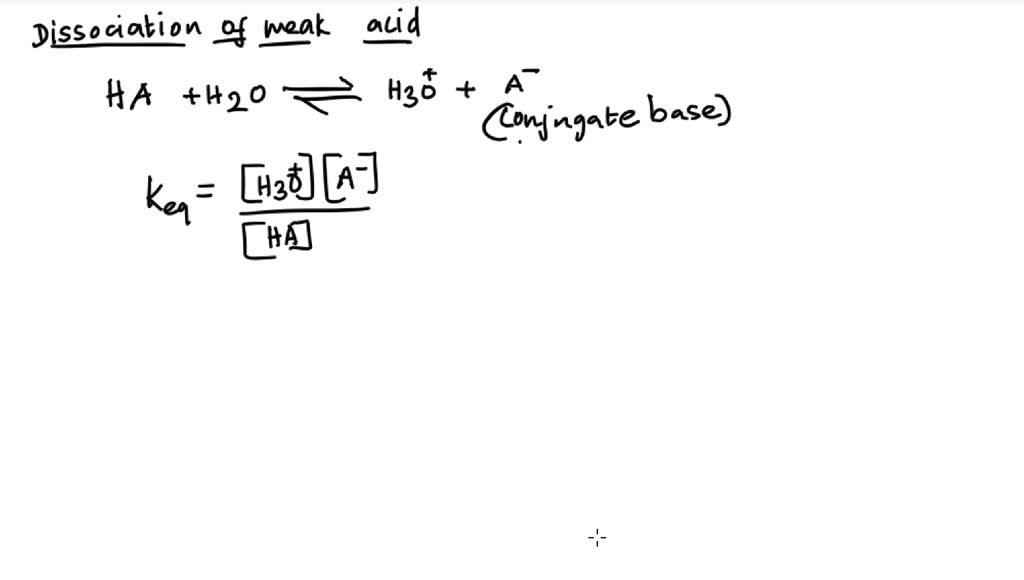 Dissociation of weak acid
HA + H2O ⇌ H3O+ + A-
(Conjugate base)
Keq = [H3O+][A-]
[HA]